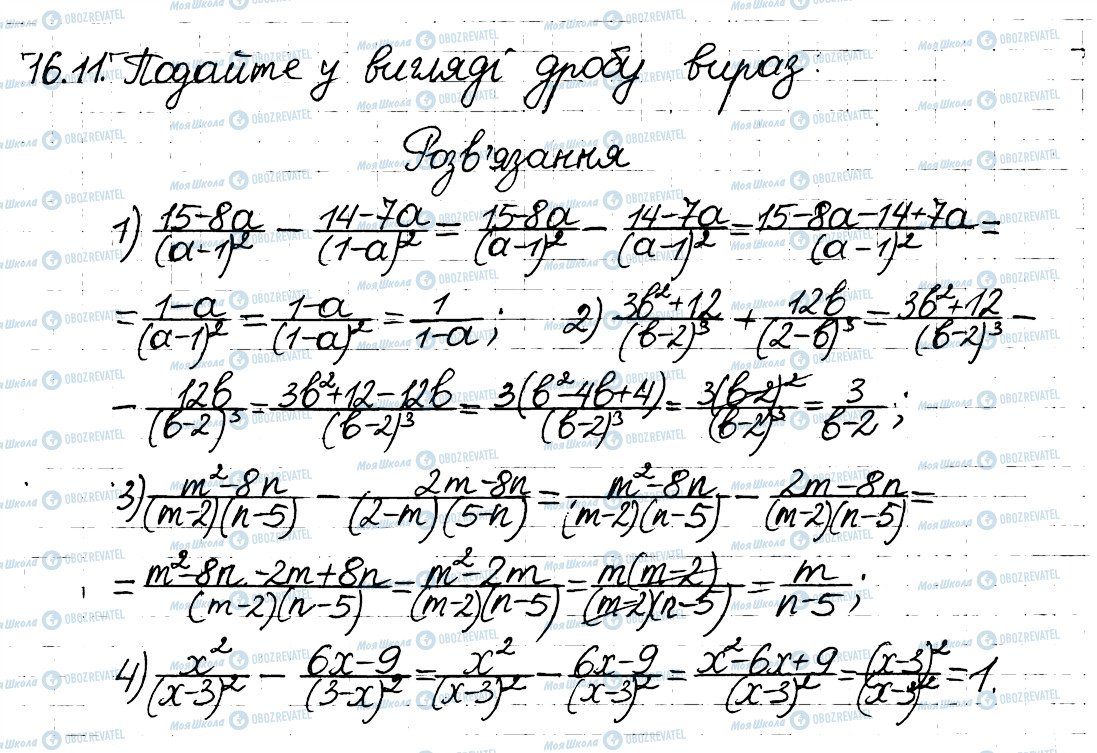 16.11. Подайте у вигляді дробу вираз.
Розв'язання
1) (15-8a)/(a-1)² - (14-7a)/(1-a)² = (15-8a)/(a-1)² - (14-7a)/(a-1)² = (15-8a-14+7a)/(a-1)² =
= (1-a)/(a-1)² = (1-a)/(1-a)² = 1/(1-a); 2) (3b²+12)/(b-2)³ + 12b/(2-b)³ = (3b²+12)/(b-2)³ -
- 12b/(b-2)³ = (3b²+12-12b)/(b-2)³ = 3(b²-4b+4)/(b-2)³ = 3(b-2)²/(b-2)³ = 3/(b-2);
3) (m²-8n)/((m-2)(n-5)) - (2m-8n)/((2-m)(5-n)) = (m²-8n)/((m-2)(n-5)) - (2m-8n)/((m-2)(n-5)) =
= (m²-8n-2m+8n)/((m-2)(n-5)) = (m²-2m)/((m-2)(n-5)) = m(m-2)/((m-2)(n-5)) = m/(n-5);
4) x²/(x-3)² - (6x-9)/(3-x)² = x²/(x-3)² - (6x-9)/(x-3)² = (x²-6x+9)/(x-3)² = (x-3)²/(x-3)² = 1.
Моя Школа OBOZREVATEL